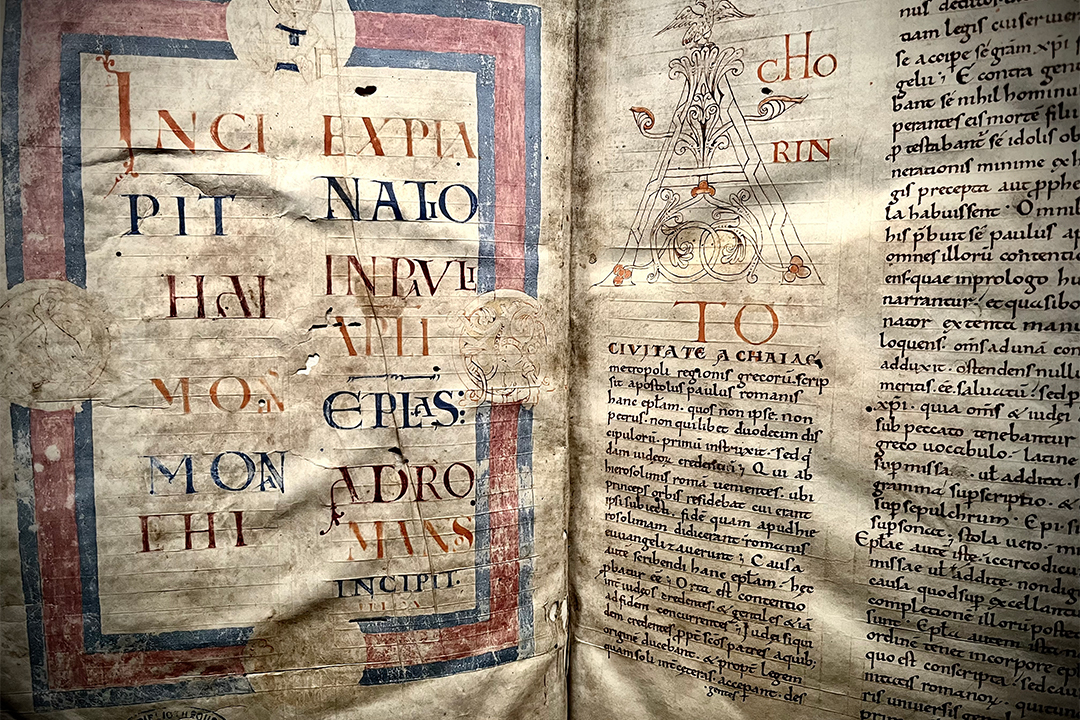 INCI
PIT
HAI
MOÑ
MON
EHI
EXPLA
NATIO
IN PAULI
APLI
EPLAS:
AD RO
MANS
INCIPIT·
A
CHO
RIN
TO
CIVITATE ACHAIAE
metropoli regionis grecorū· scrip
sit apostolus paulus romanis
hanc epłam· quos non ipse· non
petrus· non quilibet duodecim dis
cipulorū· primū instruxit· sed q
dam iudeoꝝ credentiū; Qui ab
hierosolimis romā venientes· ubi
princeps orbis residebat cui erant
ipsi subiecti· fidē quam apud hie
rosolimam didicerant romanis
euuangelizauerunt; Causa
aute scribendi hanc epłam· hec
ꝓbatur ēē; Orta est contentio
int iudeos credentes· & gentiles & iā
ad fidem concurrentes; Iudei siqui
dem credentes ꝓpt scōs patres a quib;
origine ducebant· & propt legem
quam soli int ceteras acceperant· des
gentes
nus
uam legis custier
se accipe sē grām· xp̄i
gelii; E contra gen
bant sē nihil hominu
perantes eis mortē filii
ꝓ testabant sē idolis ob
nerationis minime ex
gis precepta aut pphe
la habuissent· Omnib
his p̄buit sē paulus ap
omnes illorū contentio
quae in prologo hu
narrantur· et quasi bo
nator extenta manu
loquens· om̄s ad unā con
adduxit· ostendens nullu
meritis· ēē saluatū; sed p
xp̄i· quia om̄s & iudei
sub peccato tenebantur
greco uocabulo· latine
supmissa· uł addita·
gramma supscriptio· &
sup sepulchrum· Epi
supsonat; stola uero· mi
Epłae autē iste· iccirco dicu
missae uł addite· non dig
causa quod sup excellant
completione illorū postea
sunt· Epła autem ista
ordinē tenet in corpore ep
quo est conscripta· sed cau
nitatis romanoꝝ· quitun
ris uniuersis gen